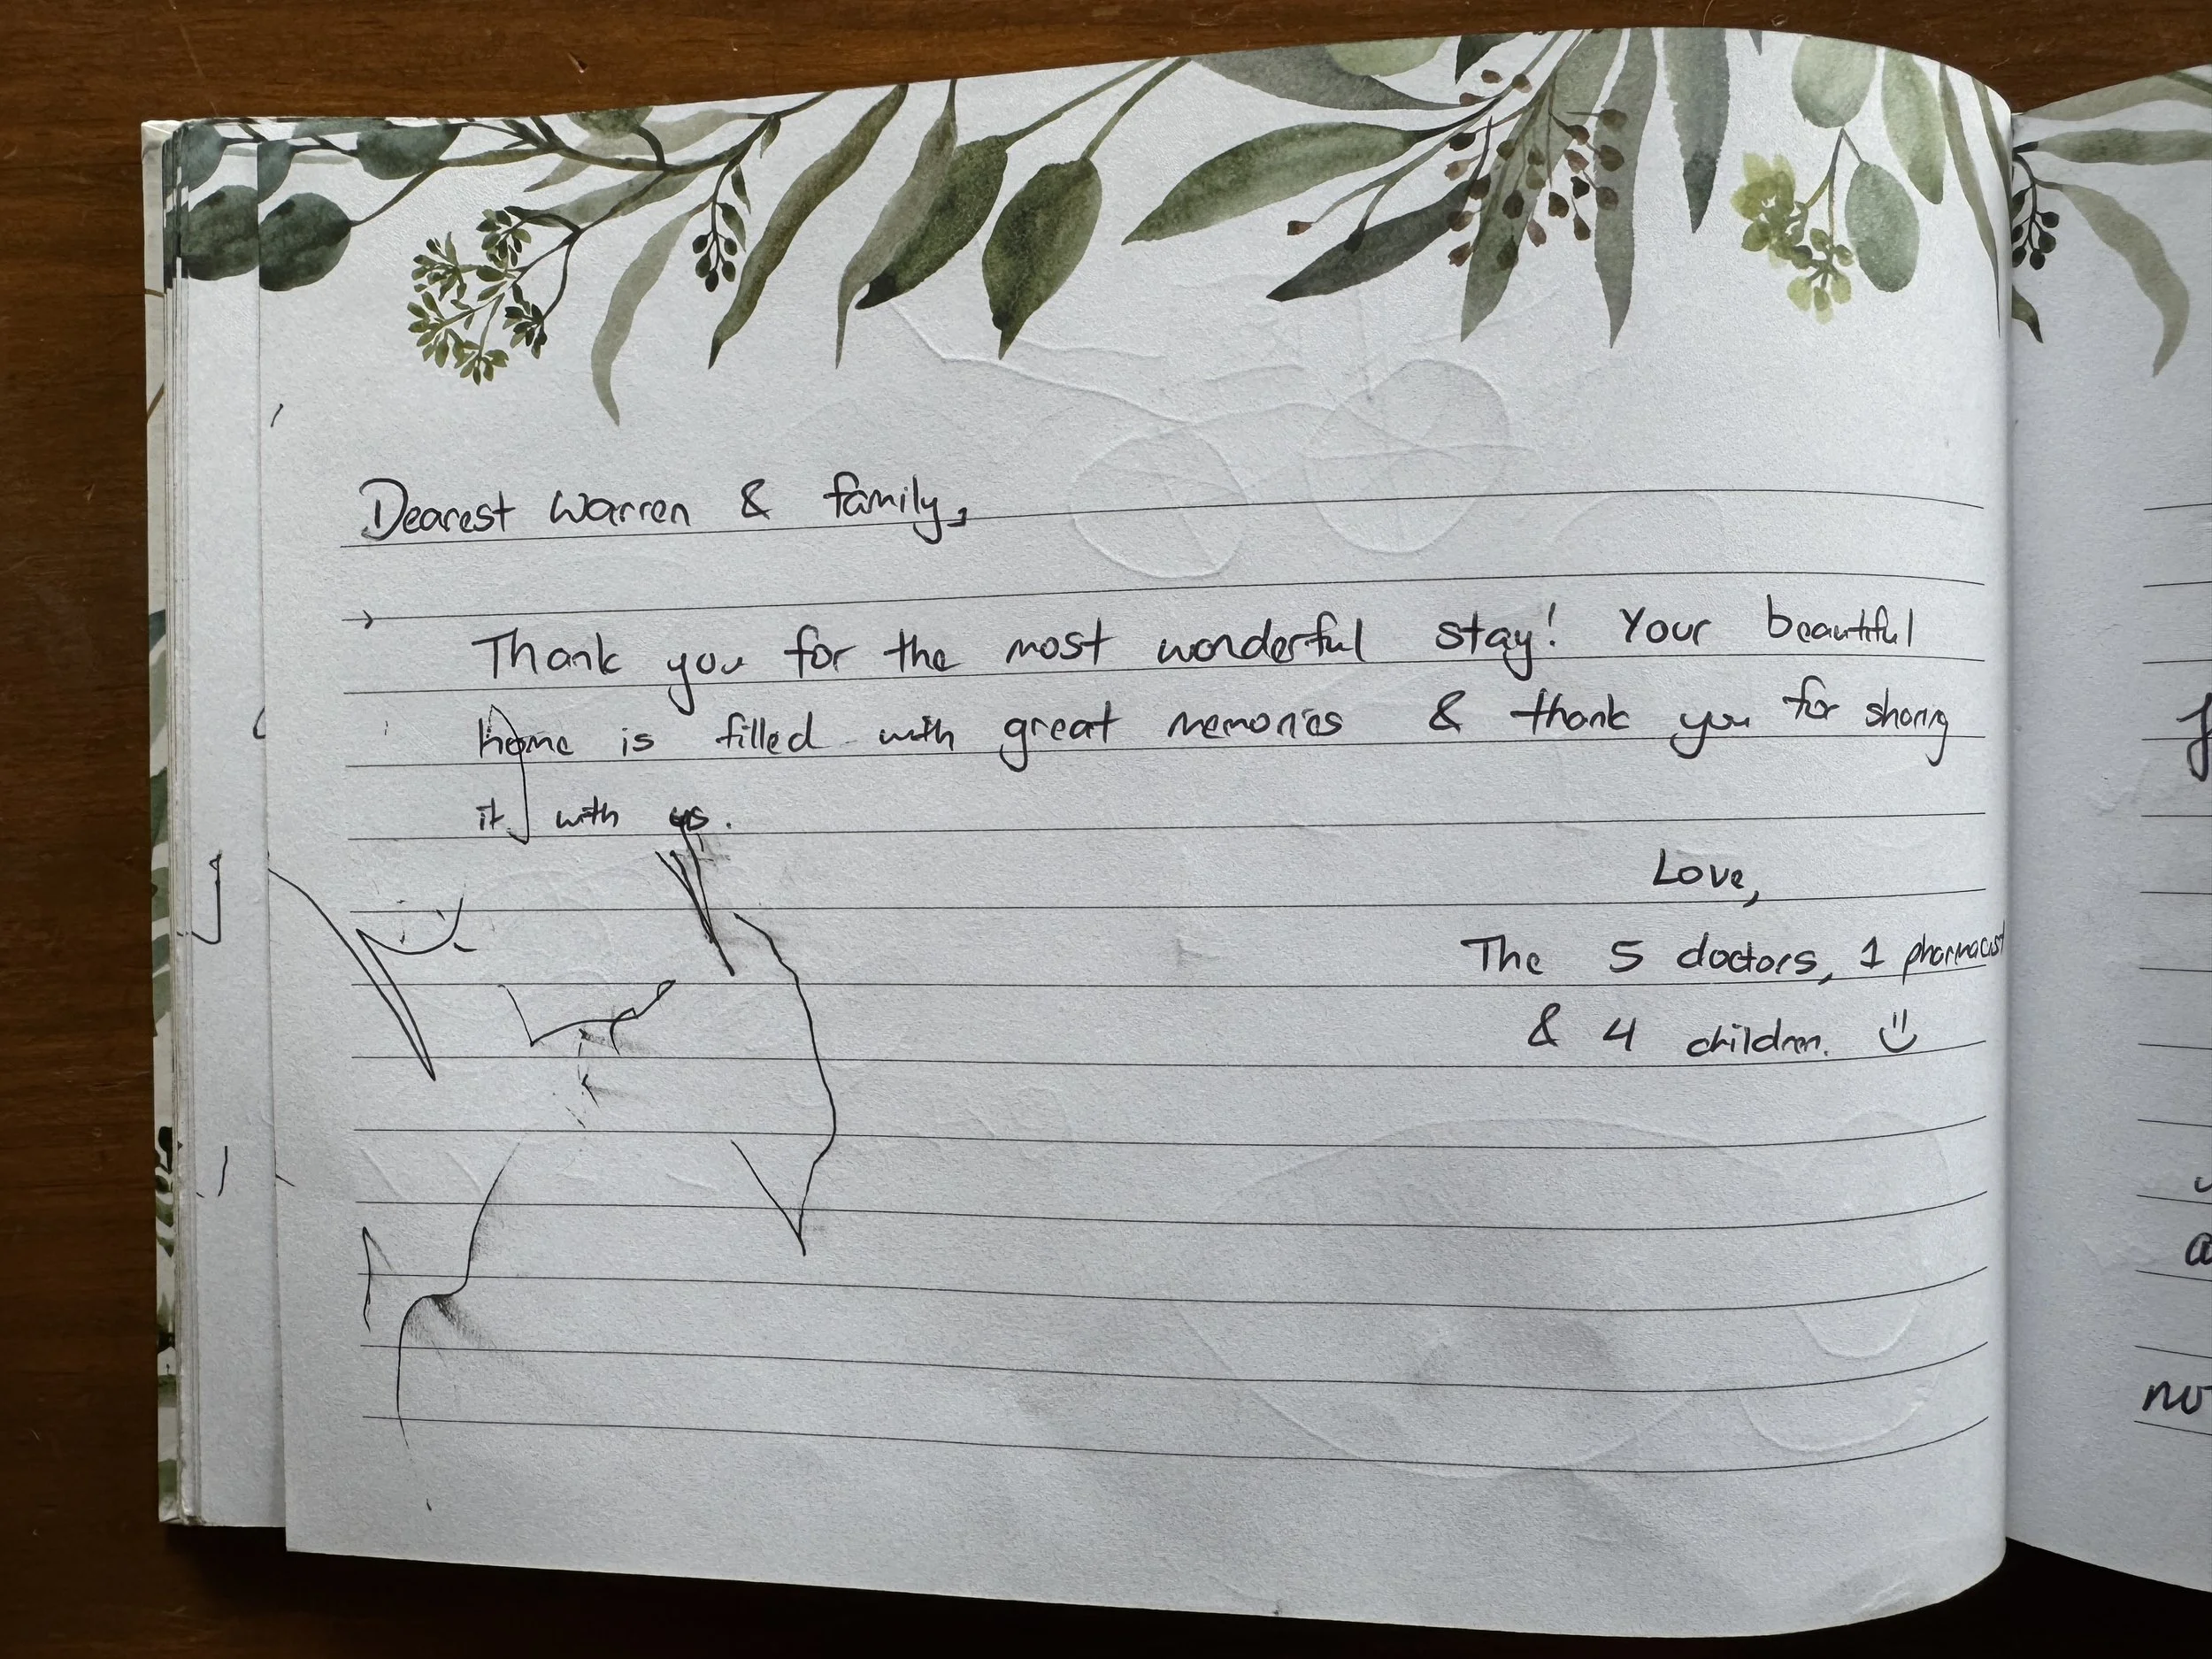 Dearest Warren & family,
Thank you for the most wonderful stay! Your beautiful
home is filled with great memories & thank you for sharing
it with us.
Love,
The 5 doctors, 1 pharmacist
& 4 children.